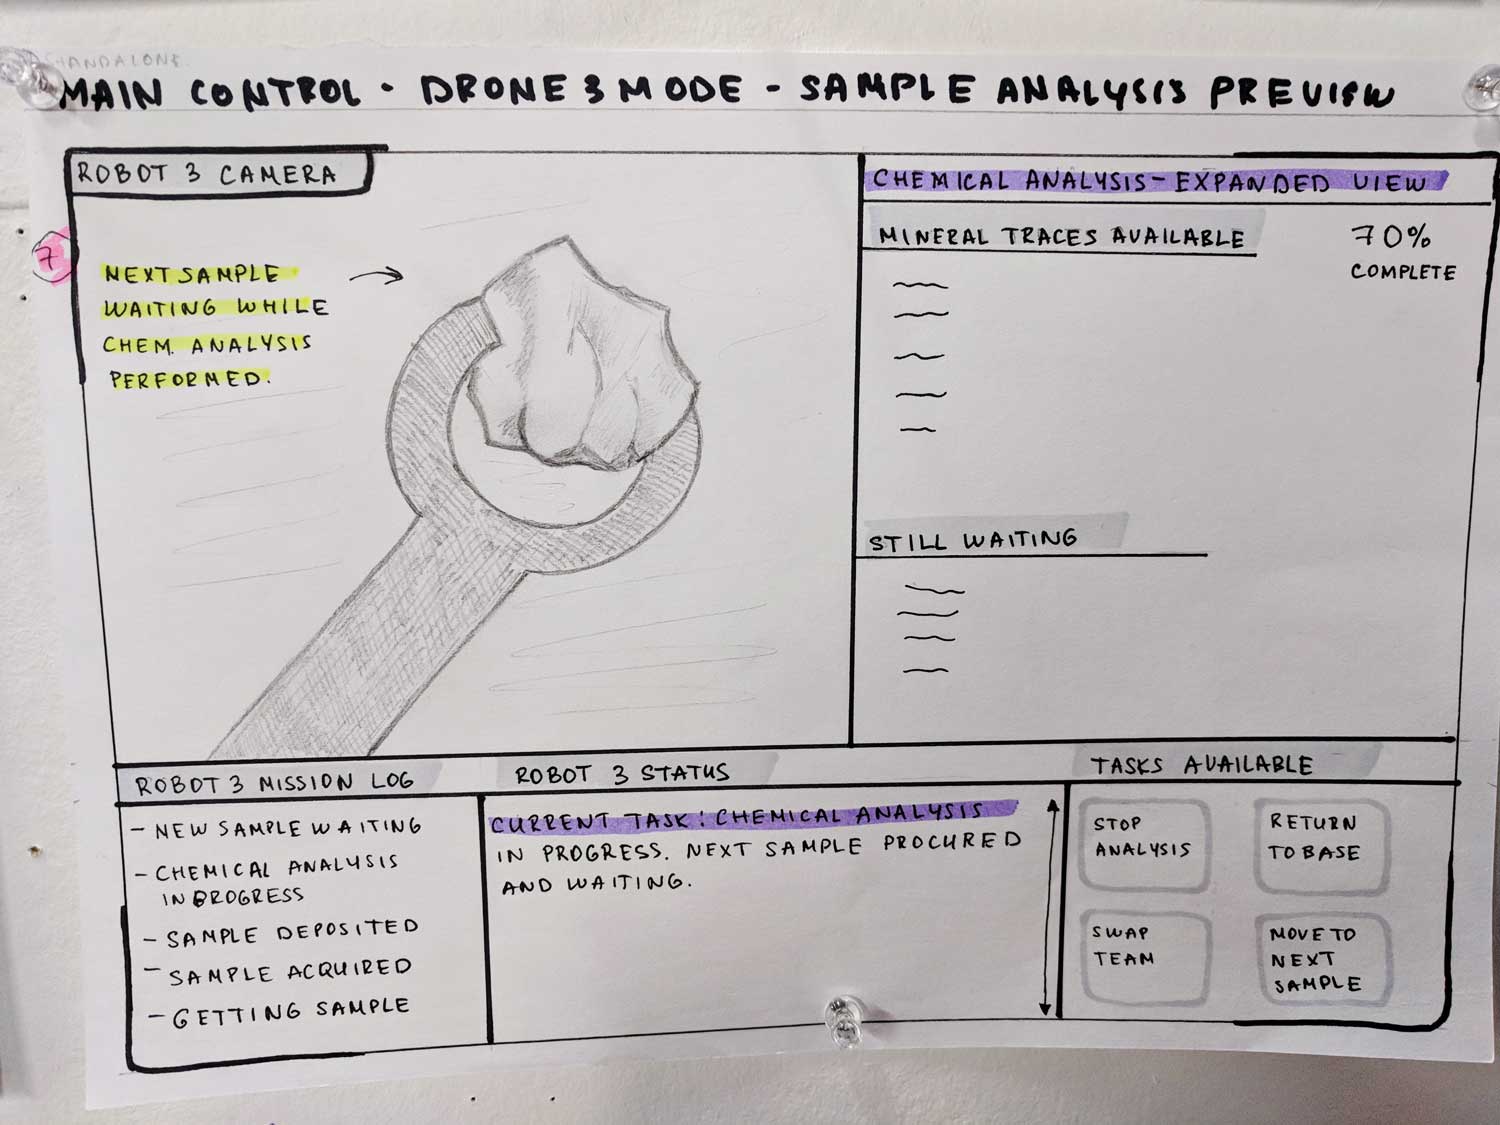 STANDALONE.
MAIN CONTROL - DRONE 3 MODE - SAMPLE ANALYSIS PREVIEW
ROBOT 3 CAMERA
7
NEXT SAMPLE
WAITING WHILE
CHEM. ANALYSIS
PERFORMED.
CHEMICAL ANALYSIS - EXPANDED VIEW
MINERAL TRACES AVAILABLE
70%
COMPLETE
STILL WAITING
ROBOT 3 MISSION LOG
- NEW SAMPLE WAITING
- CHEMICAL ANALYSIS
IN PROGRESS
- SAMPLE DEPOSITED
- SAMPLE ACQUIRED
- GETTING SAMPLE
ROBOT 3 STATUS
CURRENT TASK: CHEMICAL ANALYSIS
IN PROGRESS. NEXT SAMPLE PROCURED
AND WAITING.
TASKS AVAILABLE
STOP
ANALYSIS
RETURN
TO BASE
SWAP
TEAM
MOVE TO
NEXT
SAMPLE